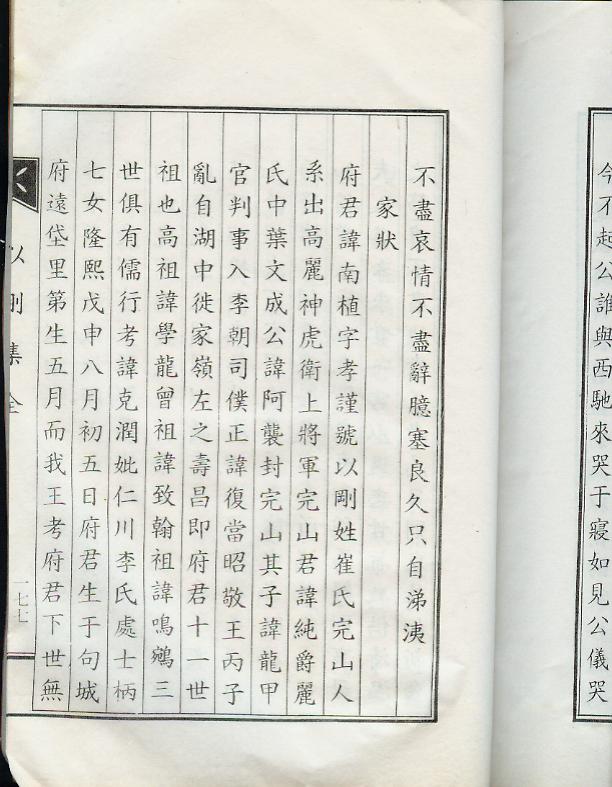 今不起公誰與西馳來哭于寢如見公儀哭
不盡哀情不盡辭臆塞良久只自涕洟
家狀
府君諱南植字孝謹號以剛姓崔氏完山人
系出高麗神虎衛上將軍完山君諱純爵麗
氏中葉文成公諱阿襲封完山其子諱龍甲
官判事入李朝司僕正諱復當昭敬王丙子
亂自湖中徙家嶺左之壽昌即府君十一世
祖也高祖諱學龍曾祖諱致翰祖諱鳴鵷三
世俱有儒行考諱克潤妣仁川李氏處士柄
七女隆熙戊申八月初五日府君生于句城
府遠垈里第生五月而我王考府君下世無
以剛集全
一七七